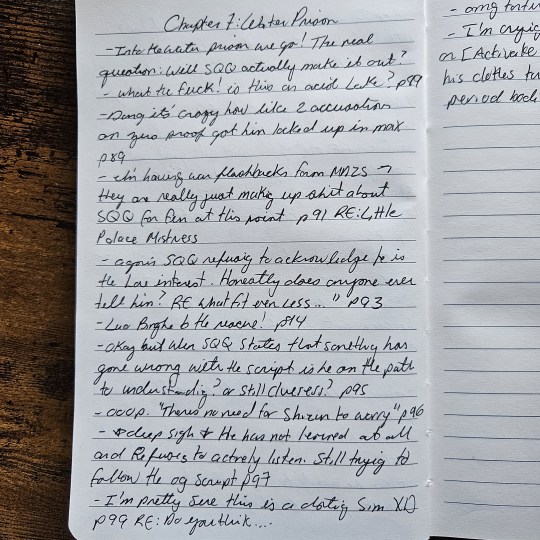 Chapter 7: Water Prison
- Into the water prison we go! The real
question: Will SQQ actually make it out?
- what the fuck! is this an acid Lake? p89
- Dang its' crazy how like 2 accusation
on zero proof got him locked up in max
p89
- I'm having war flashbacks from MDZS →
they are really just making up shit about
SQQ for fun at this point p91 RE: Little
Palace Mistress
- again SQQ refusing to acknowledge he is
the love interest. Honestly does anyone ever
tell him? RE what fit even less..." p93
- Luo Binghe to the rescue! p94
- Okay but when SQQ States that something has
gone wrong with the script is he on the path
to understanding? or still clueless? p95
- ooop. "There's no need for Shizun to worry" p96
- *deep sigh* He has not learned at all
and Refuses to actively listen. Still trying to
follow the og script p97
- I'm pretty sure this is a dating Sim XD
p99 RE: Do you think....
- omg
- I'm crying
or [Activate
his clothes
period